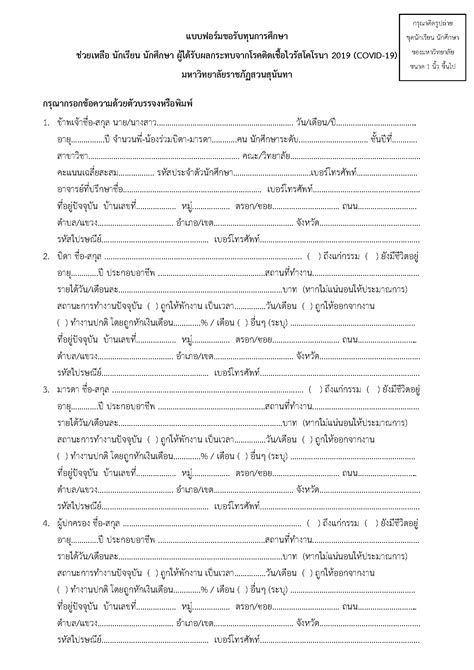 แบบฟอร์มขอรับทุนการศึกษา
ช่วยเหลือ นักเรียน นักศึกษา ผู้ได้รับผลกระทบจากโรคติดเชื้อไวรัสโคโรนา 2019 (COVID-19)
มหาวิทยาลัยราชภัฏสวนสุนันทา
กรุณาติดรูปถ่าย
ชุดนักเรียน นักศึกษา
ของมหาวิทยาลัย
ขนาด 1 นิ้ว ขึ้นไป
กรุณากรอกข้อความด้วยตัวบรรจงหรือพิมพ์
1. ข้าพเจ้าชื่อ-สกุล นาย/นางสาว.................................................... วัน/เดือน/ปี...............................
อายุ..............ปี จำนวนพี่-น้องร่วมบิดา-มารดา............คน นักศึกษาระดับ........................... ชั้นปีที่................
สาขาวิชา............................................................ คณะ/วิทยาลัย..................................................
คะแนนเฉลี่ยสะสม................ รหัสประจำตัวนักศึกษา..............................เบอร์โทรศัพท์........................
อาจารย์ที่ปรึกษาชื่อ.................................................... เบอร์โทรศัพท์........................................
ที่อยู่ปัจจุบัน บ้านเลขที่................ หมู่.............. ตรอก/ซอย.......................... ถนน........................
ตำบล/แขวง.............................. อำเภอ/เขต.............................. จังหวัด........................................
รหัสไปรษณีย์........................................ เบอร์โทรศัพท์............................................................
2. บิดา ชื่อ-สกุล ........................................................................ ( ) ถึงแก่กรรม ( ) ยังมีชีวิตอยู่
อายุ............ปี ประกอบอาชีพ ........................................สถานที่ทำงาน........................................
รายได้วัน/เดือนละ............................................................บาท (หากไม่แน่นอนให้ประมาณการ)
สถานะการทำงานปัจจุบัน ( ) ถูกให้พักงาน เป็นเวลา..............วัน/เดือน ( ) ถูกให้ออกจากงาน
( ) ทำงานปกติ โดยถูกหักเงินเดือน............% / เดือน ( ) อื่นๆ (ระบุ) ........................................
ที่อยู่ปัจจุบัน บ้านเลขที่................ หมู่.............. ตรอก/ซอย.......................... ถนน........................
ตำบล/แขวง.............................. อำเภอ/เขต.............................. จังหวัด........................................
รหัสไปรษณีย์........................................ เบอร์โทรศัพท์............................................................
3. มารดา ชื่อ-สกุล ...................................................................... ( ) ถึงแก่กรรม ( ) ยังมีชีวิตอยู่
อายุ............ปี ประกอบอาชีพ ........................................สถานที่ทำงาน........................................
รายได้วัน/เดือนละ............................................................บาท (หากไม่แน่นอนให้ประมาณการ)
สถานะการทำงานปัจจุบัน ( ) ถูกให้พักงาน เป็นเวลา..............วัน/เดือน ( ) ถูกให้ออกจากงาน
( ) ทำงานปกติ โดยถูกหักเงินเดือน............% / เดือน ( ) อื่นๆ (ระบุ) ........................................
ที่อยู่ปัจจุบัน บ้านเลขที่................ หมู่.............. ตรอก/ซอย.......................... ถนน........................
ตำบล/แขวง.............................. อำเภอ/เขต.............................. จังหวัด........................................
รหัสไปรษณีย์........................................ เบอร์โทรศัพท์............................................................
4. ผู้ปกครอง ชื่อ-สกุล .................................................................. ( ) ถึงแก่กรรม ( ) ยังมีชีวิตอยู่
อายุ............ปี ประกอบอาชีพ ........................................สถานที่ทำงาน........................................
รายได้วัน/เดือนละ............................................................บาท (หากไม่แน่นอนให้ประมาณการ)
สถานะการทำงานปัจจุบัน ( ) ถูกให้พักงาน เป็นเวลา..............วัน/เดือน ( ) ถูกให้ออกจากงาน
( ) ทำงานปกติ โดยถูกหักเงินเดือน............% / เดือน ( ) อื่นๆ (ระบุ) ........................................
ที่อยู่ปัจจุบัน บ้านเลขที่................ หมู่.............. ตรอก/ซอย.......................... ถนน........................
ตำบล/แขวง.............................. อำเภอ/เขต.............................. จังหวัด........................................
รหัสไปรษณีย์........................................ เบอร์โทรศัพท์............................................................